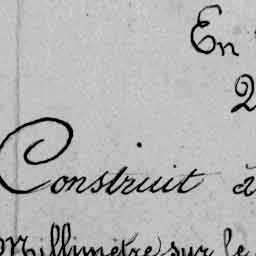 En
2
Construit à
Millimètre sur le